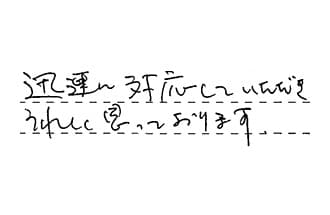 迅速に対応していただき
うれしく思っております.